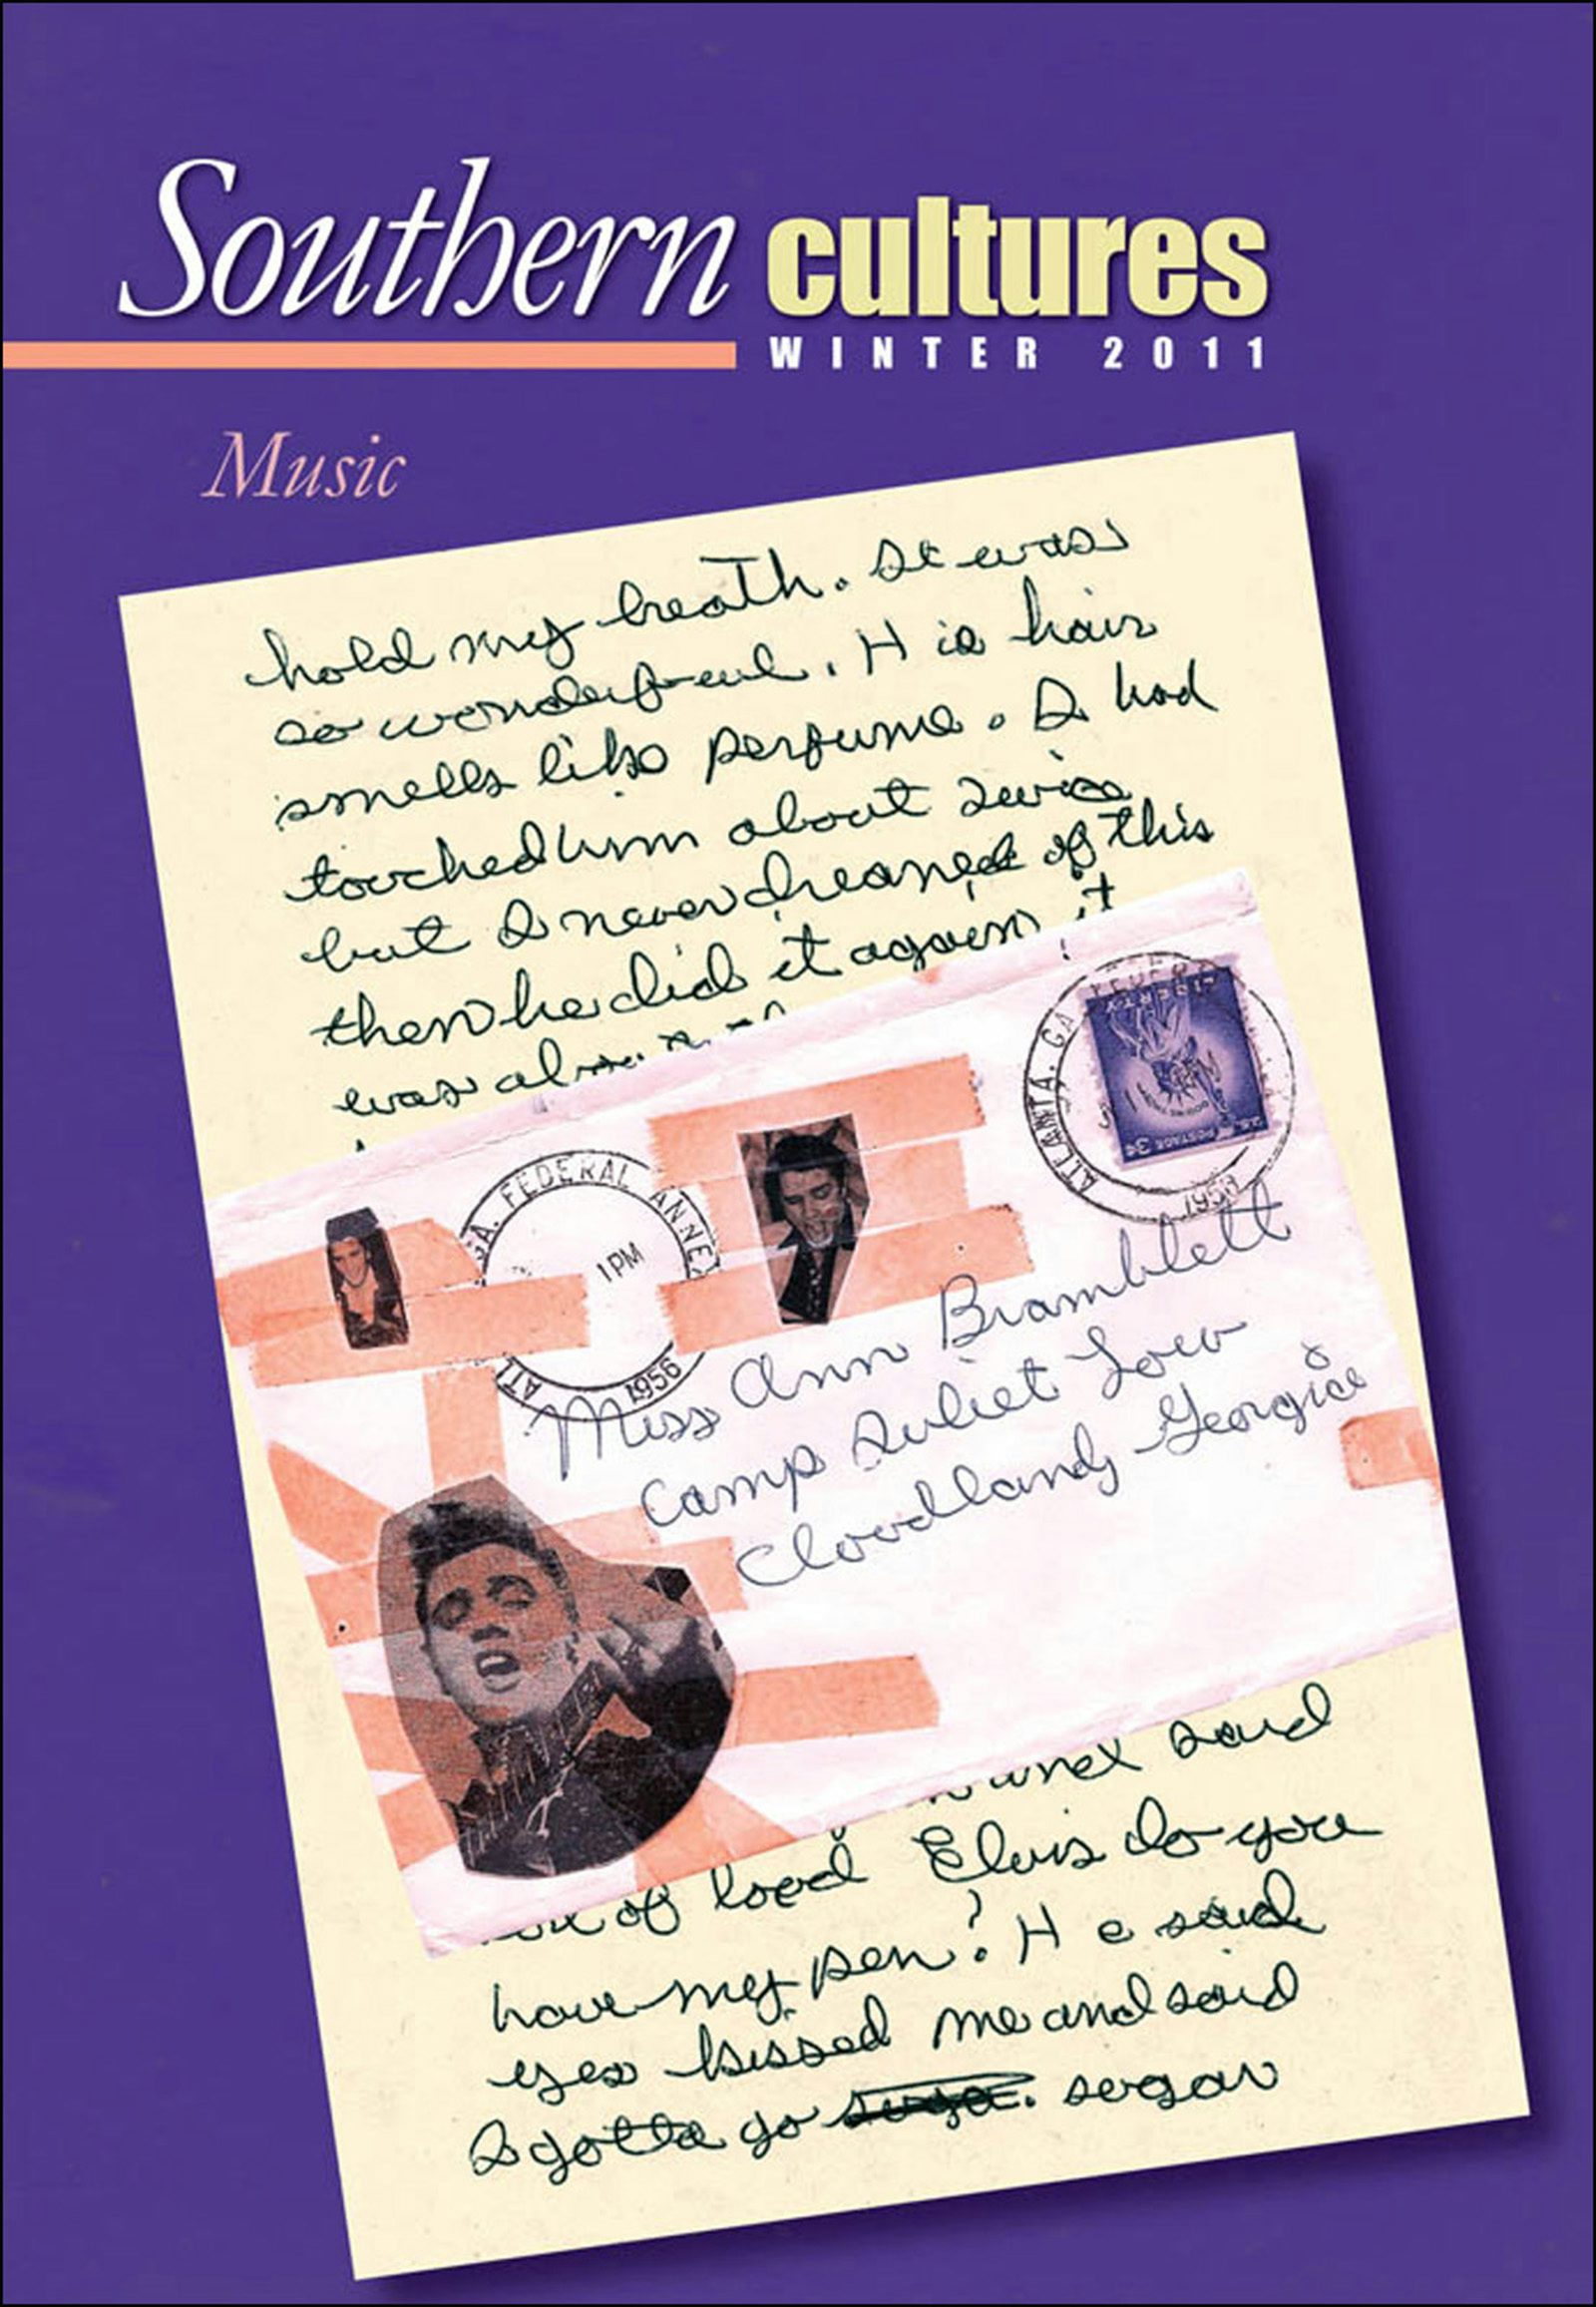 Southern cultures
WINTER 2011
Music
hold my breath. It was
so wonderful. H is hair
smells like perfume. I had
touched him about twice
but I never dreamed of this
then he did it again it
was
LIBERTY
ATLANTA. GA
U.S. POSTAGE 3¢
1956
GA. FEDERAL ANNEX
1 PM
ATL
1956
Miss Ann Bramblett
Camp Juliet Low
Cloudland, Georgia
and said
of lood Elvis do you
have my pen? H e said
yes kissed me and said
I gotta go suga. sugar